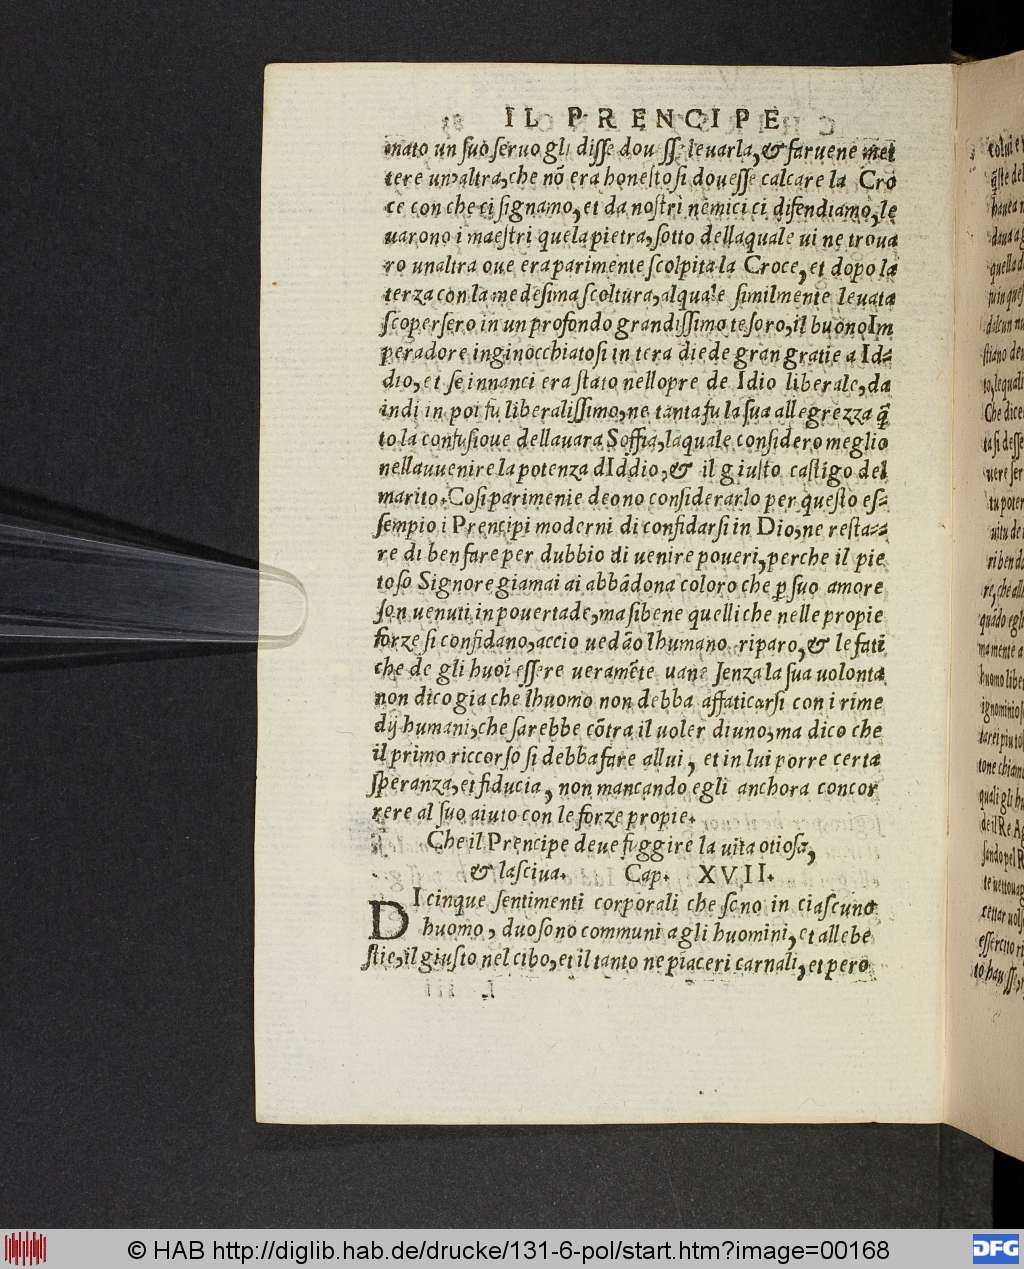 IL PRENCIPE
mato un ſuo ſeruo gli diſſe doueſſe leuarla, & faruene met
tere un'altra, che nō era honeſto ſi doueſſe calcare la Cro
ce con che ci ſignamo, et da noſtri nemici ci difendiamo, le
uarono i maeſtri quela pietra, ſotto dellaquale ui ne troua
ro unaltra oue era parimente ſcolpita la Croce, et dopo la
terza con la medeſima ſcoltura, alquale ſimilmente leuata
ſcoperſero in un profondo grandiſſimo teſoro, il buono Im
peradore inginocchiatoſi in tera diede gran gratie a Id=
dio, et ſe innanci era ſtato nellopre de Idio liberale, da
indi in poi fu liberaliſſimo, ne tanta fu la ſua allegrezza q̄
to la confuſioue dellauara Soffia, laquale conſidero meglio
nellauuenire la potenza dIddio, & il giuſto caſtigo del
marito. Coſi parimenie deono conſiderarlo per queſto eſ=
ſempio i Prencipi moderni di confidarſi in Dio, ne reſta=
re di ben fare per dubbio di uenire poueri, perche il pie
toſo Signore giamai ai abbādona coloro che ꝑ ſuo amore
ſon uenuti in pouertade, ma ſibene quelli che nelle propie
forze ſi confidano, accio uedāo lhumano riparo, & le fati
che de gli huoī eſſere ueramēte uane ſenza la ſua uolonta
non dico gia che lhuomo non debba affaticarſi con i rime
dij humani, che ſarebbe cōtra il uoler diuno, ma dico che
il primo riccorſo ſi debba fare allui, et in lui porre certa
ſperanza, et fiducia, non mancando egli anchora concor
rere al ſuo aiuto con le forze propie.
Che il Prencipe deue fuggire la uita otioſa,
& laſciua. Cap. XVII.
DI cinque ſentimenti corporali che ſono in ciaſcuno
huomo, duo ſono communi a gli huomini, et alle be
ſtie, il giuſto nel cibo, et il tanto ne piaceri carnali, et pero
© HAB http://diglib.hab.de/drucke/131-6-pol/start.htm?image=00168
DFG